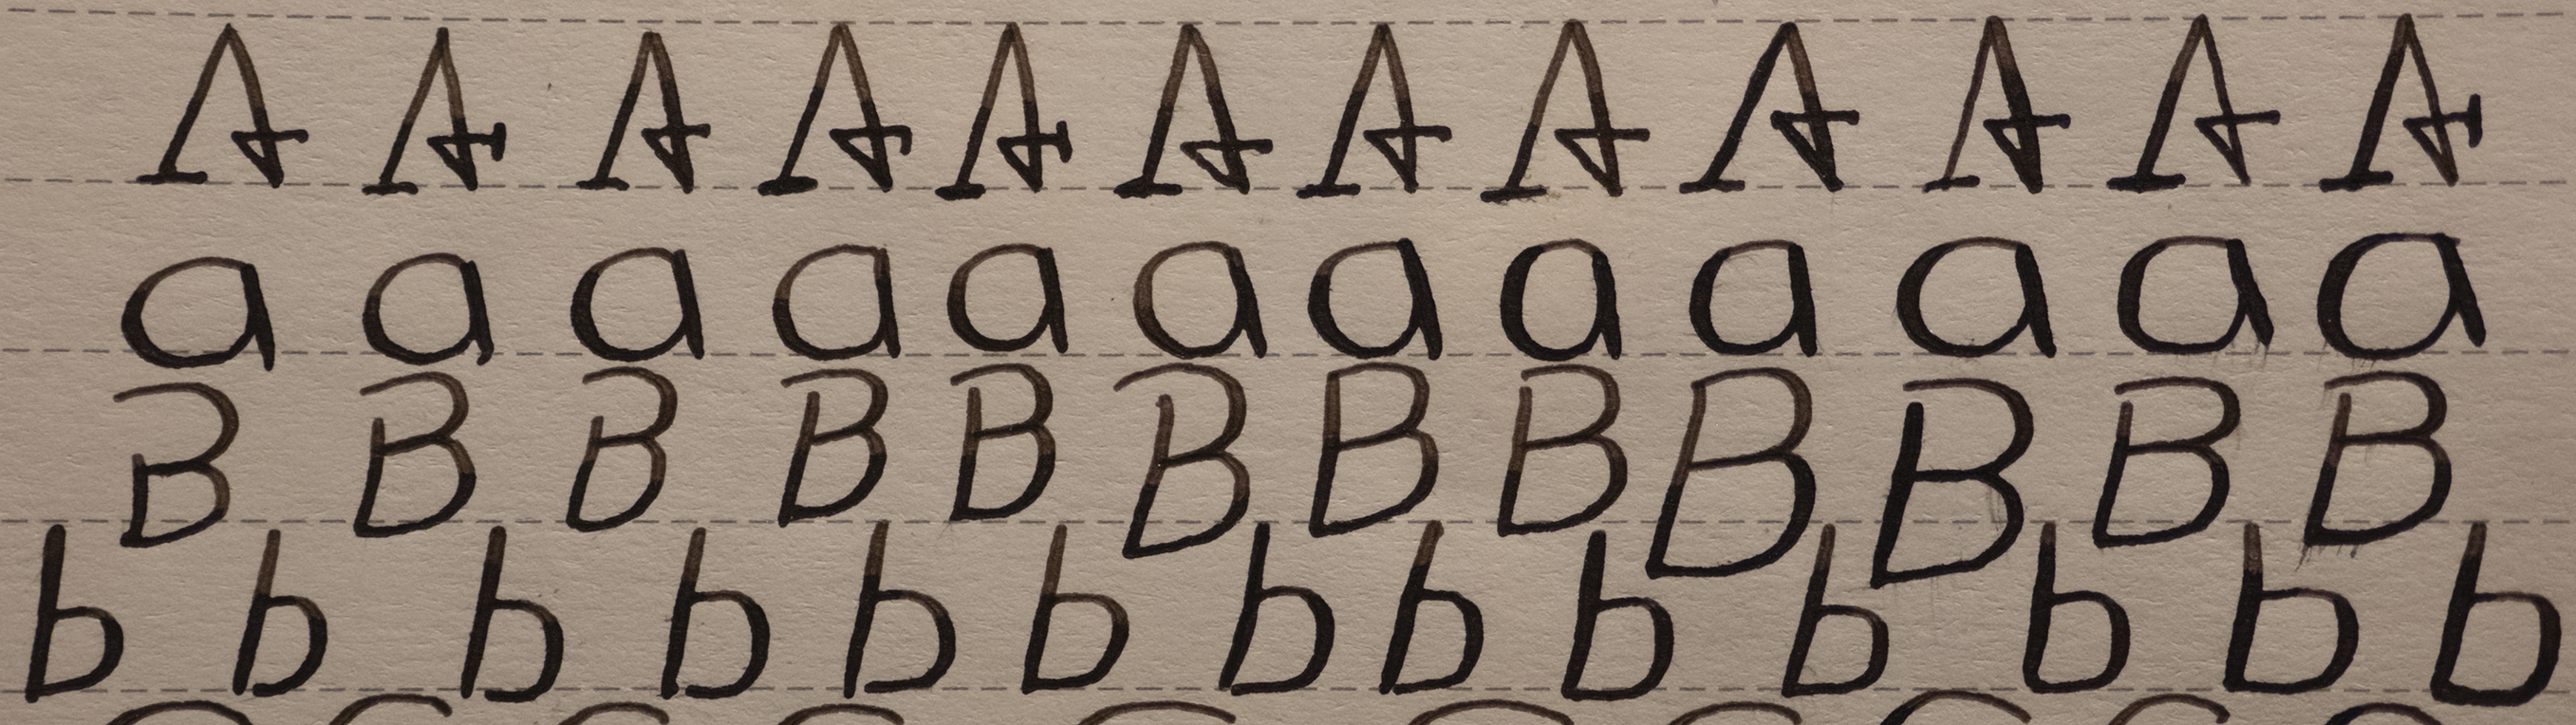 A A A A A A A A A A A A
a a a a a a a a a a a a
B B B B B B B B B B B B
b b b b b b b b b b b b b